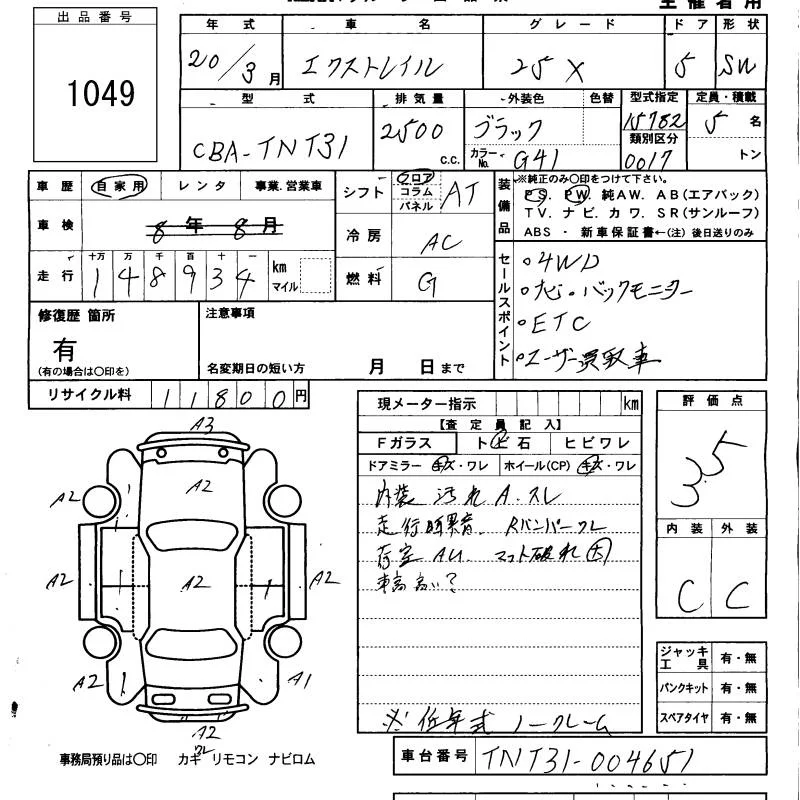 主催者用
出品番号
1049
年式 車名 グレード ドア 形状
20/3月 エクストレイル 25X 5 SW
型式 排気量 外装色 色替 型式指定 定員・積載
CBA-TNT31 2500 c.c. ブラック 15782 5名
類別区分
カラーNo. G41 0017 トン
車歴 自家用 レンタ 事業.営業車
車検 8年8月
走行 十万 万 千 百 十 一
148934 km マイル
シフト フロア コラム パネル AT
冷房 AC
燃料 G
装備品
※純正のみ〇印をつけて下さい。
PS. PW. 純AW. AB(エアバック)
TV. ナビ. カワ. SR(サンルーフ)
ABS ・ 新車保証書←(注)後日送りのみ
セールスポイント
・4WD
バックモニター
・ETC
・ユーザー買取車
修復歴 箇所
有
(有の場合は〇印を)
注意事項
名変期日の短い方 月 日まで
リサイクル料 11800円
現メーター指示 km
【査定員記入】
Fガラス トビ石 ヒビワレ
ドアミラー キズ・ワレ ホイール(CP) キズ・ワレ
内装 汚れ A.スレ
Rバンパーワレ
マット破れ 大
車高高い?
※低年式 ノークレーム
評価点
3.5
内装 外装
C C
ジャッキ工具 有・無
パンクキット 有・無
スペアタイヤ 有・無
A3
A2
A2
A2
A2
A2
A2
A2
A1
A2
ワレ
事務局預り品は〇印 カギ リモコン ナビロム
車台番号 TNT31-004651